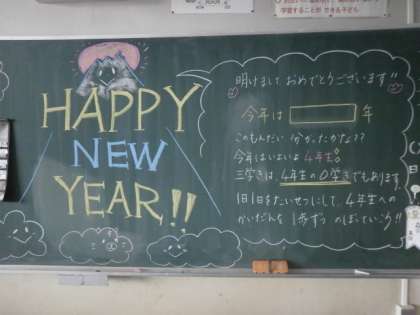 学習することが できる子ども
HAPPY
NEW
YEAR!!
明けまして おめでとうございます!!
今年は 年
このもんだい 分かったかな??
今年はいよいよ 4年生。
三学きは、4年生の0学きでもあります
1日1日をたいせつにして、4年生への
かいだんを 1歩ずつ のぼっていこう!!
日